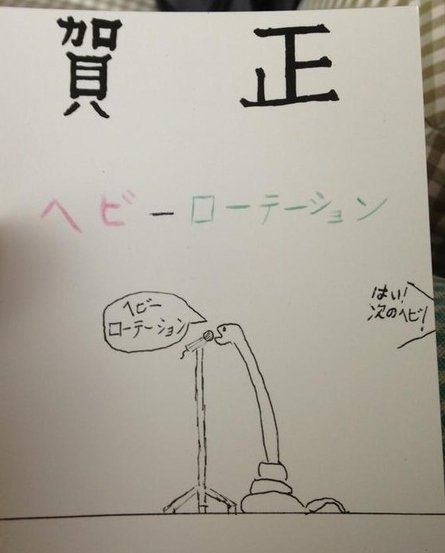 賀正
ヘビーローテーション
ヘビー
ローテーション
はい!
次のヘビ!